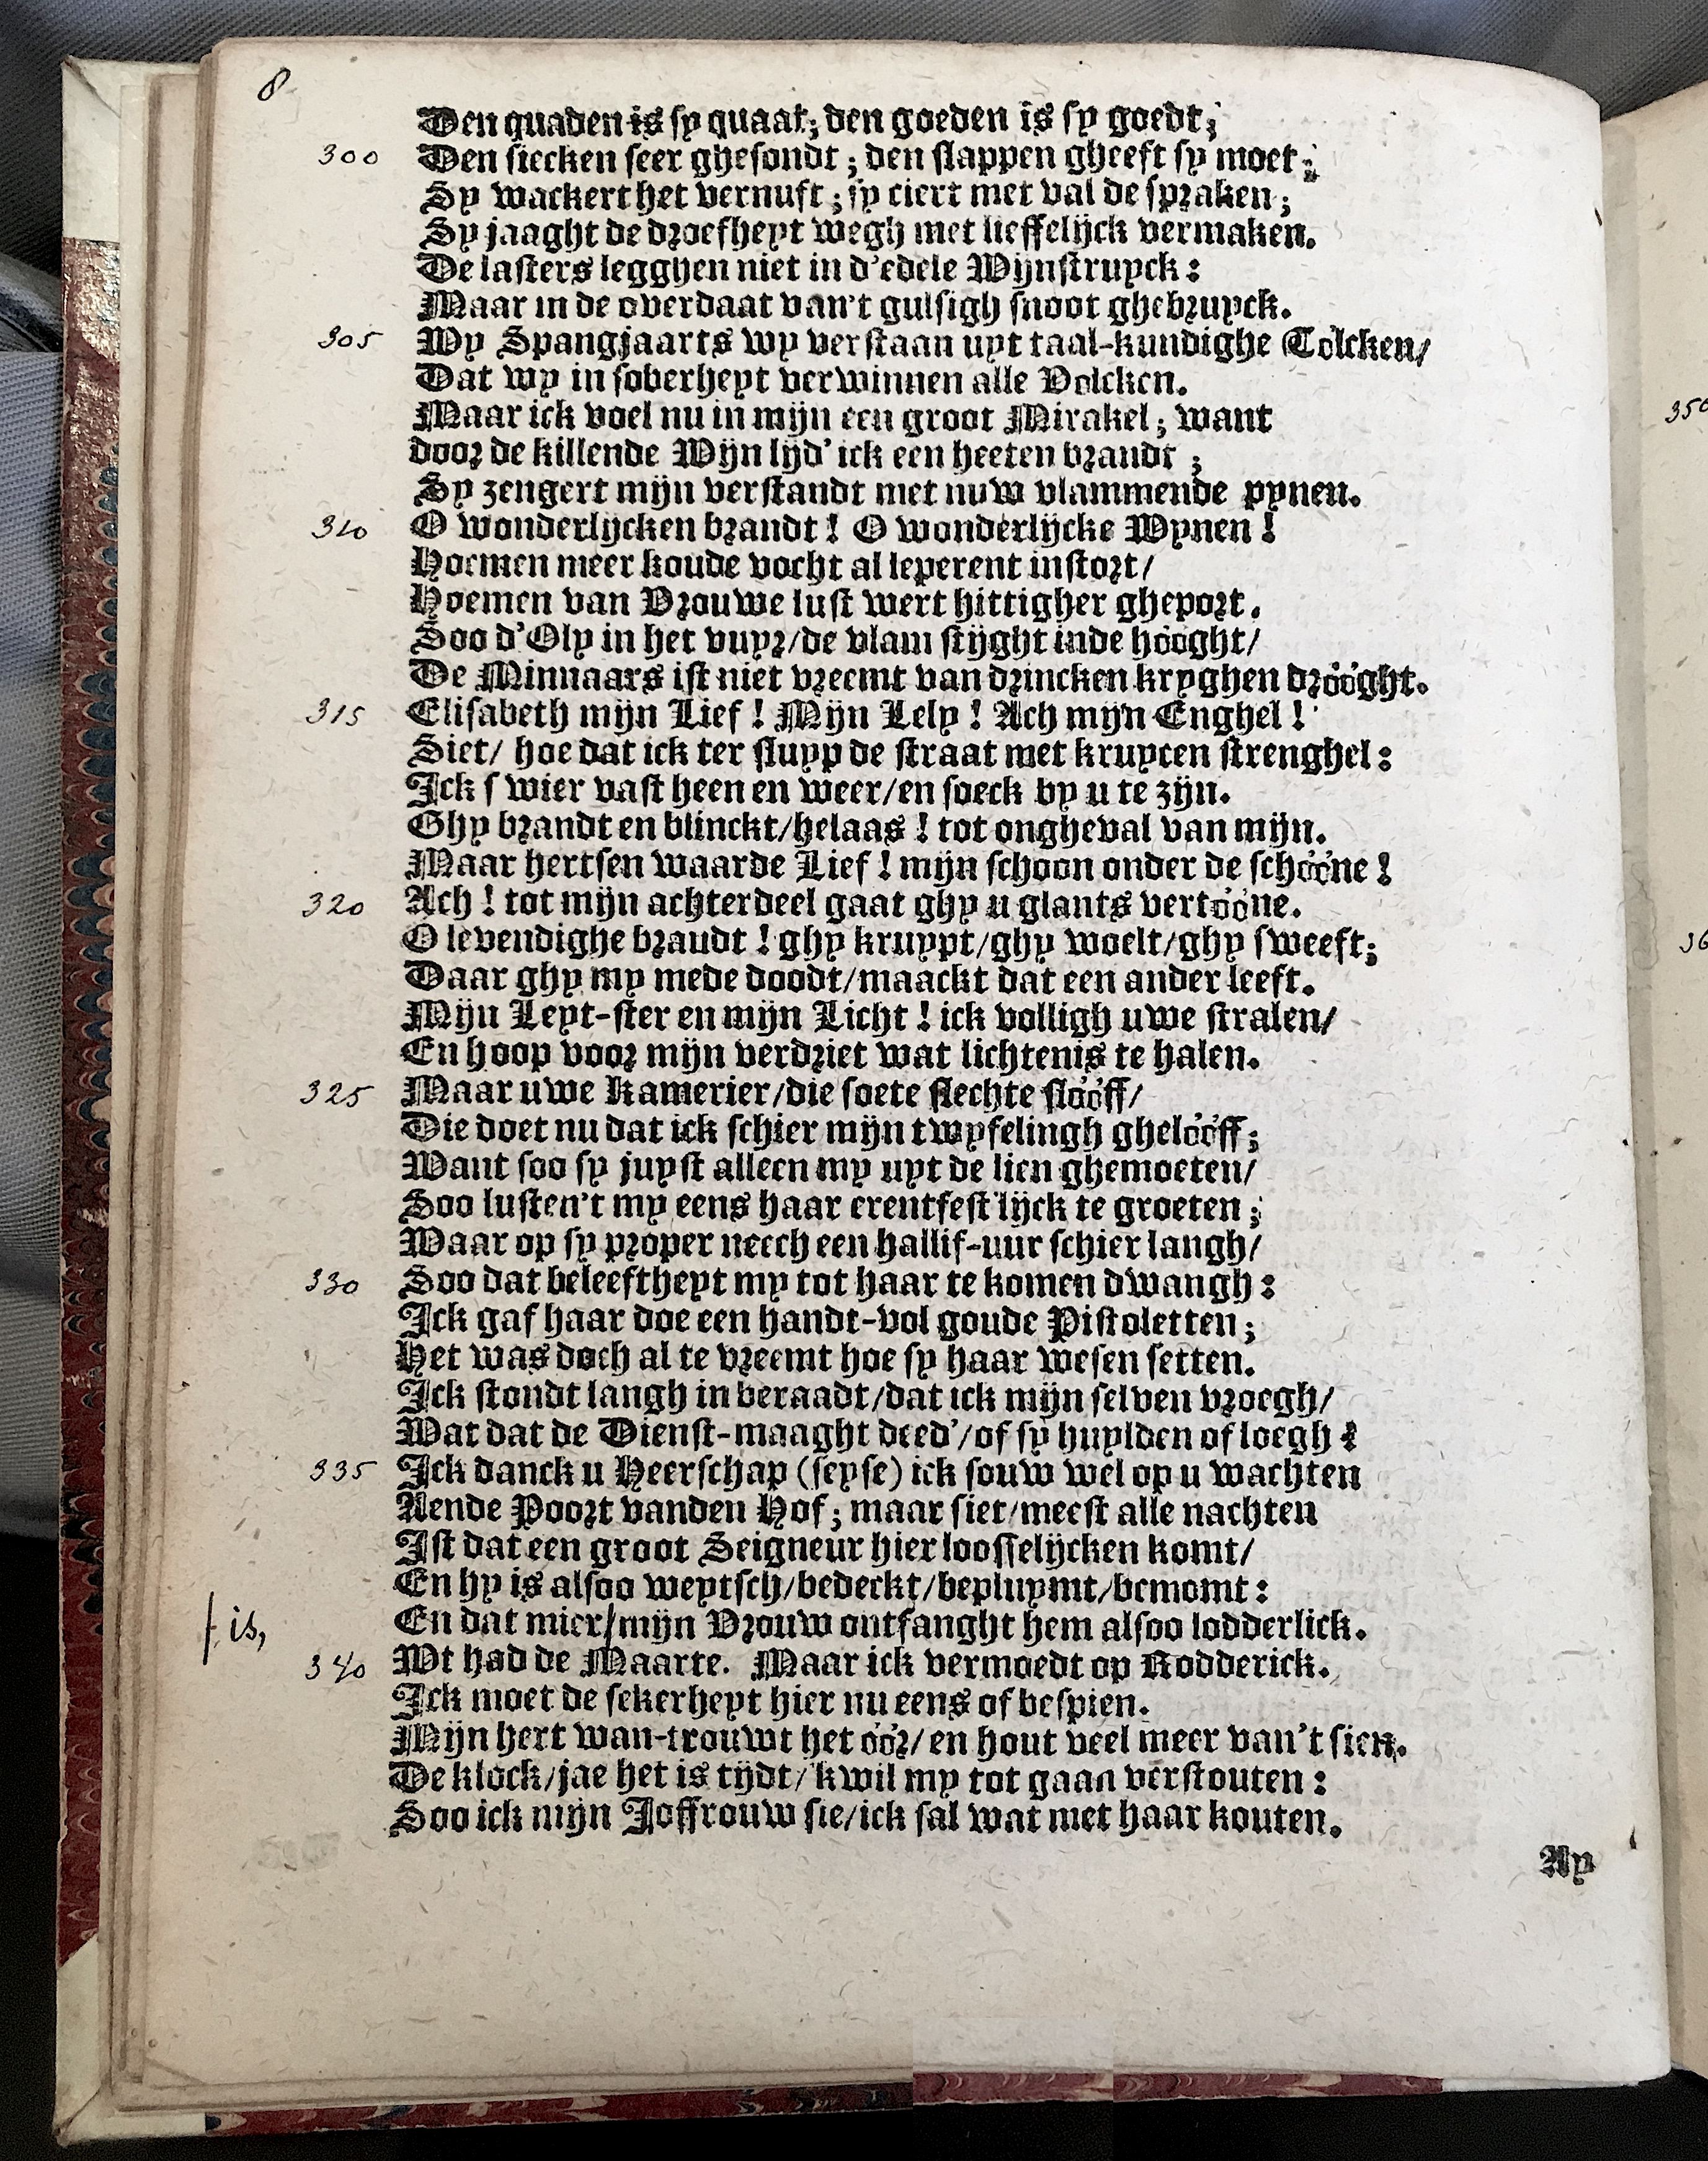 8
Den quaden is sy quaat; den goeden is sy goedt;
300 Den siecken seer ghesondt; den slappen gheeft sy moet;
Sy wackert het vernuft; sy ciert met val de spraken;
Sy jaaght de droefheyt wegh met lieffelijck vermaken.
De lasters legghen niet in d'edele Wijnstruyck:
Maar in de overdaat van't gulsigh snoot ghebruyck.
305 Wy Spangjaarts wy verstaan uyt taal-kundighe Tolcken/
Dat wy in soberheyt verwinnen alle Volcken.
Maar ick voel nu in mijn een groot Mirakel; want
door de killende Wijn lijd' ick een heeten brandt;
Sy zengert mijn verstandt met nuw vlammende pynen.
310 O wonderlijcken brandt! O wonderlijcke Wynen!
Hoemen meer koude vocht al leperent instort/
Hoemen van Vrouwe lust wert hittigher gheport.
Soo d'Oly in het vuyr/de vlam stijght inde hóóght/
De Minnaars ist niet vreemt van drincken kryghen dróóght.
315 Elisabeth mijn Lief! Mijn Lely! Ach mijn Enghel!
Siet/ hoe dat ick ter sluyp de straat met kruycen strenghel:
Ick swier vast heen en weer/en soeck by u te zijn.
Ghy brandt en blinckt/helaas! tot ongheval van mijn.
Maar hertsen waarde Lief! mijn schoon onder de schóóne!
320 Ach! tot mijn achterdeel gaat ghy u glants vertóóne.
O levendighe brandt! ghy kruypt/ghy woelt/ghy sweeft;
Daar ghy my mede doodt/maackt dat een ander leeft.
Mijn Leyt-ster en mijn Licht! ick volligh uwe stralen/
En hoop voor mijn verdriet wat lichtenis te halen.
325 Maar uwe Kamerier/die soete slechte slóóff/
Die doet nu dat ick schier mijn twyfelingh ghelóóff;
Want soo sy juyst alleen my uyt de lien ghemoeten/
Soo lusten't my eens haar erentfestlijck te groeten;
Waar op sy proper neech een hallif-uur schier langh/
330 Soo dat beleeftheyt my tot haar te komen dwangh:
Ick gaf haar doe een handt-vol goude Pistoletten;
Het was doch al te vreemt hoe sy haar wesen setten.
Ick stondt langh in beraadt/dat ick mijn selven vroegh/
Wat dat de Dienst-maaght deed'/of sy huylden of loegh?
335 Ick danck u Heerschap (seyse) ick souw wel op u wachten
Aende Poort vanden Hof; maar siet/meest alle nachten
Ist dat een groot Seigneur hier loosselijcken komt/
En hy is alsoo weytsch/bedeckt/bepluymt/bemomt:
| is, En dat mier/mijn Vrouw ontfanght hem alsoo lodderlick.
340 Wt had de Maarte. Maar ick vermoedt op Rodderick.
Ick moet de sekerheyt hier nu eens of bespien.
Mijn hert wan-trouwt het óór/en hout veel meer van't sien.
De klock/jae het is tijdt/'k wil my tot gaan verstouten:
Soo ick mijn Joffrouw sie/ick sal wat met haar kouten.
Ay
350
36